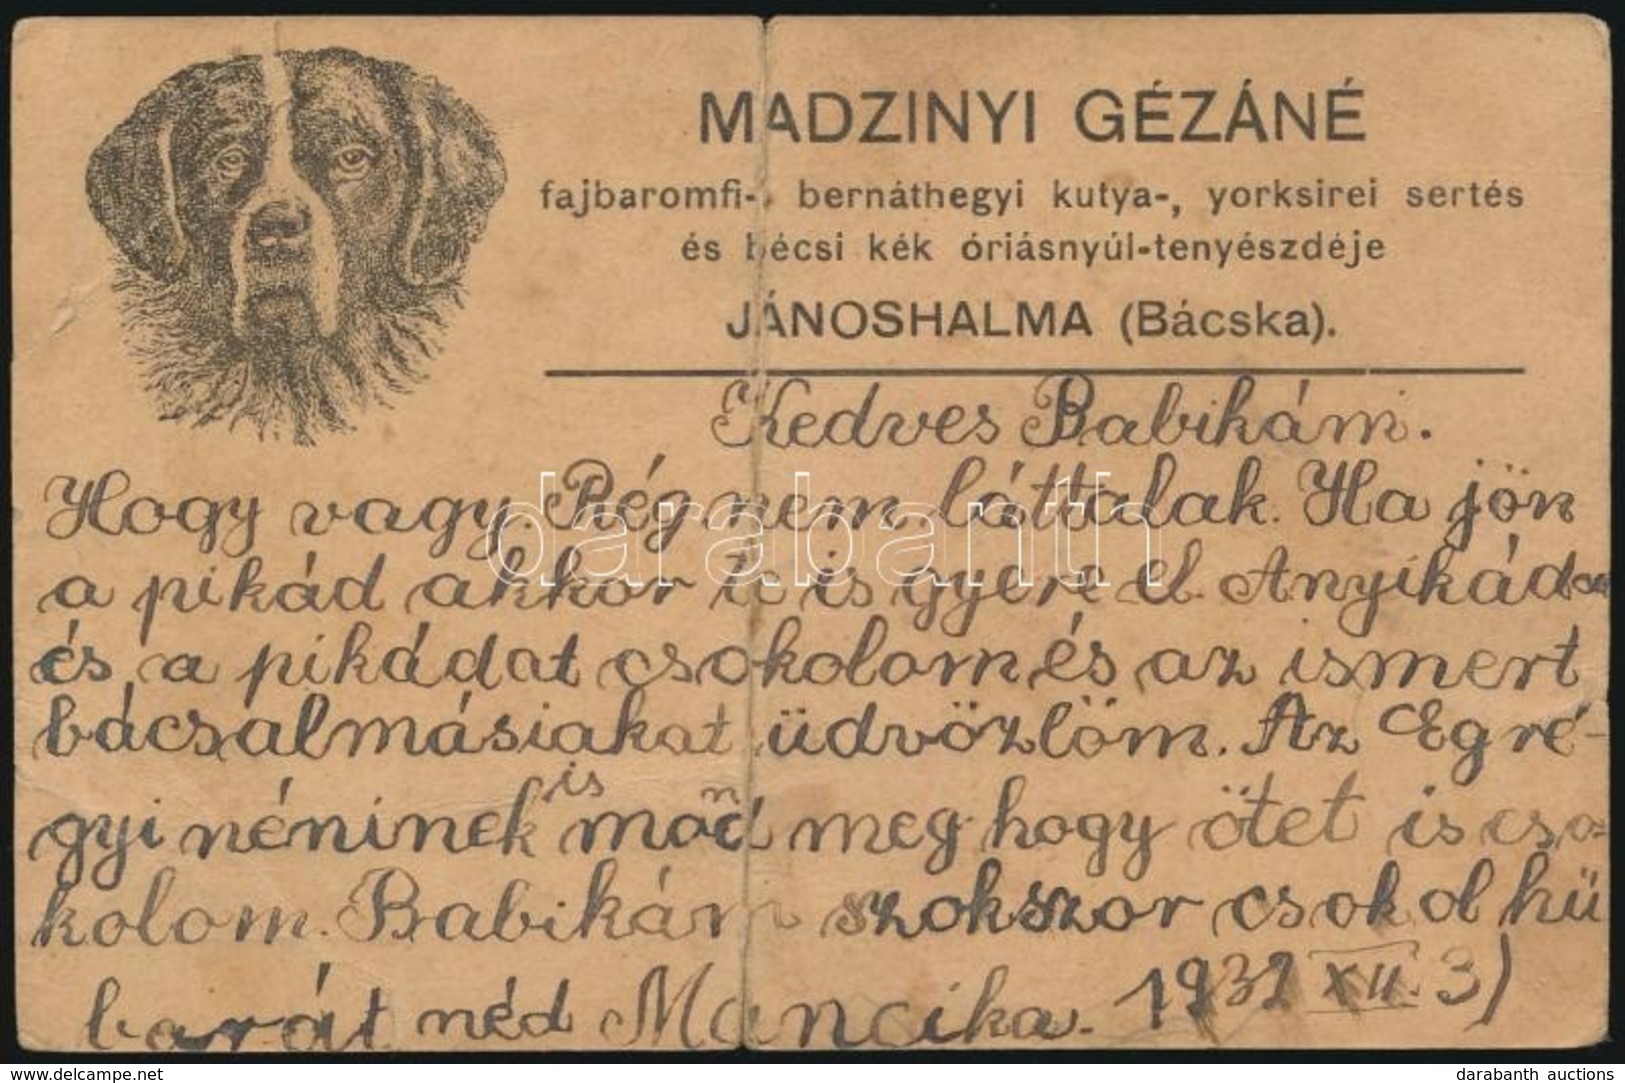 MADZINYI GÉZÁNÉ
fajbaromfi-, bernáthegyi kutya-, yorksirei sertés
és bécsi kék óriásnyúl-tenyészdéje
JÁNOSHALMA (Bácska).
Kedves Babikám.
Hogy vagy. Rég nem láttalak. Ha jön
a pikád akkor te is gyere el. Anyikádat
és a pikádat csokolom és az ismert
bácsalmásiakat üdvözlöm. Az Egré-
gyi néninek is mond meg hogy ötet is cso-
kolom. Babikám szokszor csokol hü
barát néd Mancika. 1932 XII. 31
darabanth
www.delcampe.net
darabanth auctions